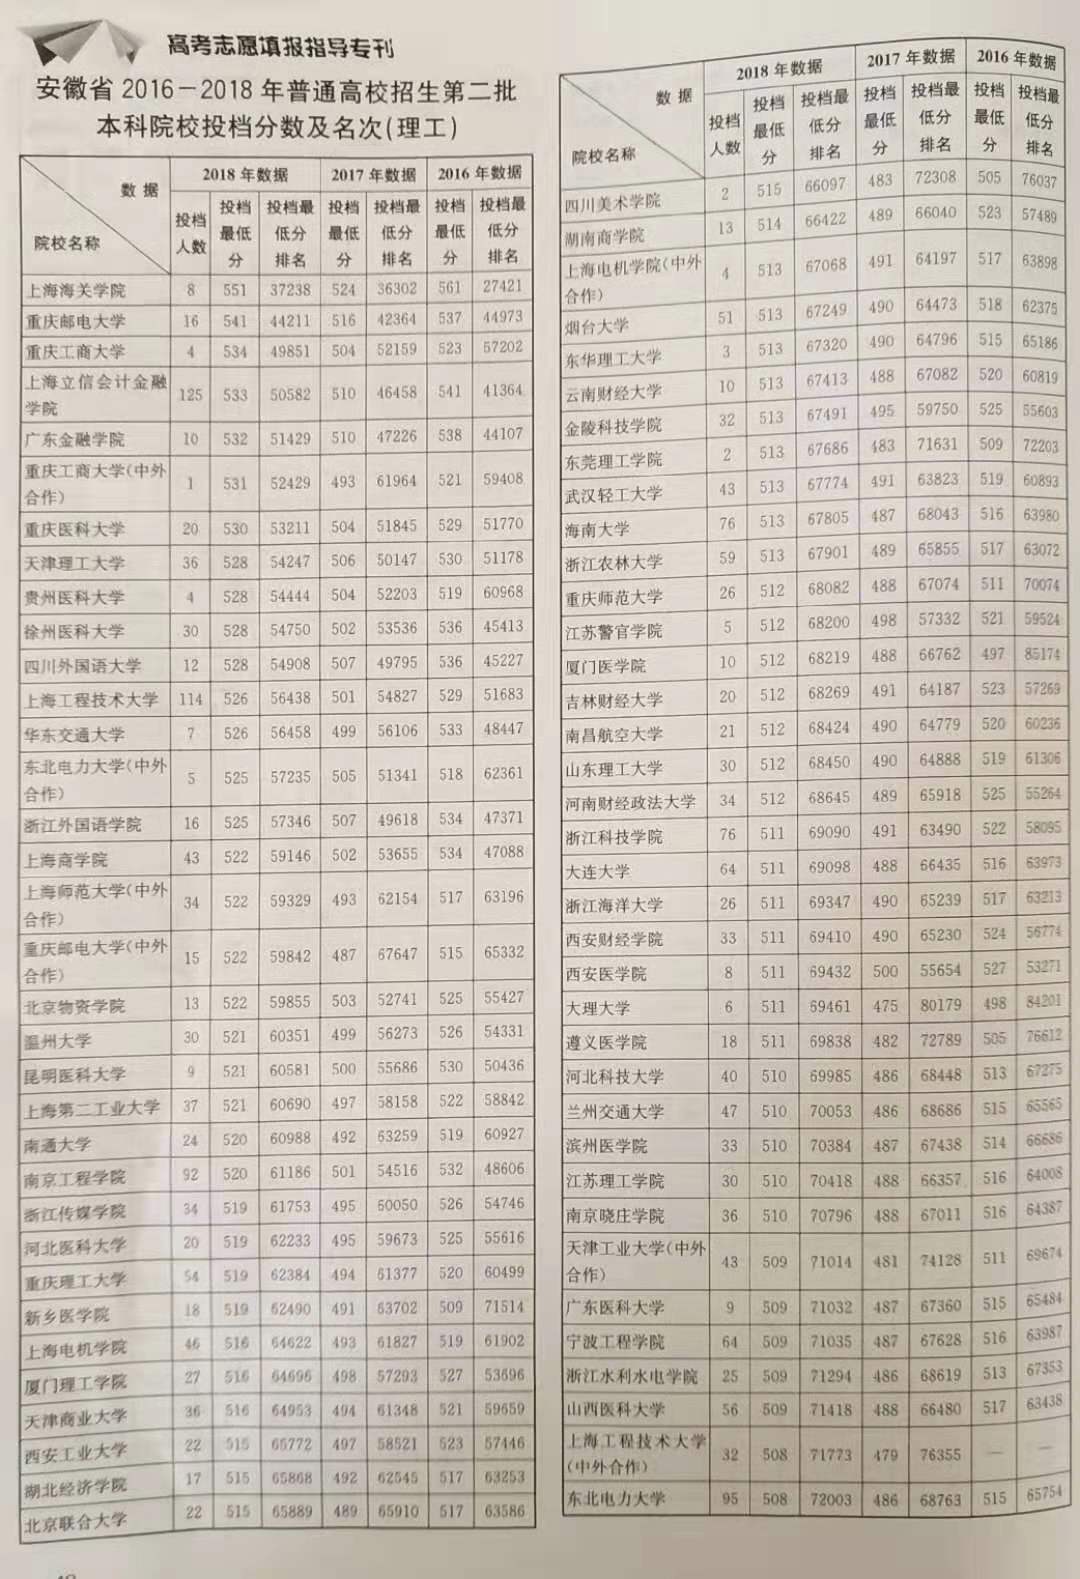 高考志愿填报指导专刊
安徽省2016－2018年普通高校招生第二批
本科院校投档分数及名次(理工)
数据 2018年数据 2017年数据 2016年数据
院校名称 投档人数 投档最低分 投档最低分排名 投档最低分 投档最低分排名 投档最低分 投档最低分排名
上海海关学院 8 551 37238 524 36302 561 27421
重庆邮电大学 16 541 44211 516 42364 537 44973
重庆工商大学 4 534 49851 504 52159 523 57202
上海立信会计金融学院 125 533 50582 510 46458 541 41364
广东金融学院 10 532 51429 510 47226 538 44107
重庆工商大学(中外合作) 1 531 52429 493 61964 521 59408
重庆医科大学 20 530 53211 504 51845 529 51770
天津理工大学 36 528 54247 506 50147 530 51178
贵州医科大学 4 528 54444 504 52203 519 60968
徐州医科大学 30 528 54750 502 53536 536 45413
四川外国语大学 12 528 54908 507 49795 536 45227
上海工程技术大学 114 526 56438 501 54827 529 51683
华东交通大学 7 526 56458 499 56106 533 48447
东北电力大学(中外合作) 5 525 57235 505 51341 518 62361
浙江外国语学院 16 525 57346 507 49618 534 47371
上海商学院 43 522 59146 502 53655 534 47088
上海师范大学(中外合作) 34 522 59329 493 62154 517 63196
重庆邮电大学(中外合作) 15 522 59842 487 67647 515 65332
北京物资学院 13 522 59855 503 52741 525 55427
温州大学 30 521 60351 499 56273 526 54331
昆明医科大学 9 521 60581 500 55686 530 50436
上海第二工业大学 37 521 60690 497 58158 522 58842
南通大学 24 520 60988 492 63259 519 60927
南京工程学院 92 520 61186 501 54516 532 48606
浙江传媒学院 34 519 61753 495 60050 526 54746
河北医科大学 20 519 62233 495 59673 525 55616
重庆理工大学 54 519 62384 494 61377 520 60499
新乡医学院 18 519 62490 491 63702 509 71514
上海电机学院 46 516 64622 493 61827 519 61902
厦门理工学院 27 516 64696 498 57293 527 53696
天津商业大学 36 516 64953 494 61348 521 59659
西安工业大学 22 515 65772 497 58521 523 57446
湖北经济学院 17 515 65868 492 62545 517 63253
北京联合大学 22 515 65889 489 65910 517 63586
数据 2018年数据 2017年数据 2016年数据
院校名称 投档人数 投档最低分 投档最低分排名 投档最低分 投档最低分排名 投档最低分 投档最低分排名
四川美术学院 2 515 66097 483 72308 505 76037
湖南商学院 13 514 66422 489 66040 523 57489
上海电机学院(中外合作) 4 513 67068 491 64197 517 63898
烟台大学 51 513 67249 490 64473 518 62375
东华理工大学 3 513 67320 490 64796 515 65186
云南财经大学 10 513 67413 488 67082 520 60819
金陵科技学院 32 513 67491 495 59750 525 55603
东莞理工学院 2 513 67686 483 71631 509 72203
武汉轻工大学 43 513 67774 491 63823 519 60893
海南大学 76 513 67805 487 68043 516 63980
浙江农林大学 59 513 67901 489 65855 517 63072
重庆师范大学 26 512 68082 488 67074 511 70074
江苏警官学院 5 512 68200 498 57332 521 59524
厦门医学院 10 512 68219 488 66762 497 85174
吉林财经大学 20 512 68269 491 64187 523 57269
南昌航空大学 21 512 68424 490 64779 520 60236
山东理工大学 30 512 68450 490 64888 519 61306
河南财经政法大学 34 512 68645 489 65918 525 55264
浙江科技学院 76 511 69090 491 63490 522 58095
大连大学 64 511 69098 488 66435 516 63973
浙江海洋大学 26 511 69347 490 65239 517 63213
西安财经学院 33 511 69410 490 65230 524 56774
西安医学院 8 511 69432 500 55654 527 53271
大理大学 6 511 69461 475 80179 498 84201
遵义医学院 18 511 69838 482 72789 505 76612
河北科技大学 40 510 69985 486 68448 513 67275
兰州交通大学 47 510 70053 486 68686 515 65565
滨州医学院 33 510 70384 487 67438 514 66686
江苏理工学院 30 510 70418 488 66357 516 64008
南京晓庄学院 36 510 70796 488 67011 516 64387
天津工业大学(中外合作) 43 509 71014 481 74128 511 69674
广东医科大学 9 509 71032 487 67360 515 65484
宁波工程学院 64 509 71035 487 67628 516 63987
浙江水利水电学院 25 509 71294 486 68619 513 67353
山西医科大学 56 509 71418 488 66480 517 63438
上海工程技术大学(中外合作) 32 508 71773 479 76355 — —
东北电力大学 95 508 72003 486 68763 515 65754